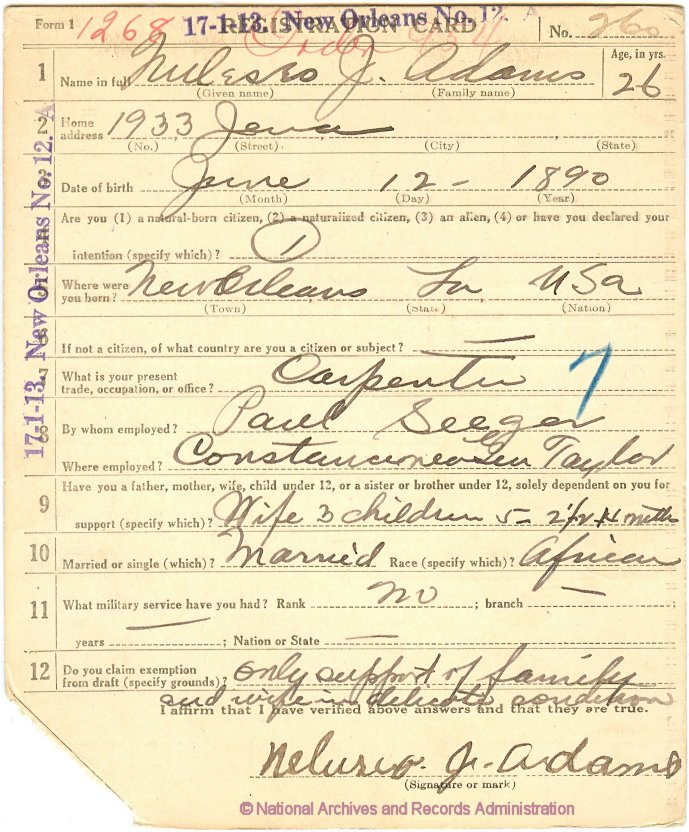 Form 1 1268 REGISTRATION CARD No. 260
17-1-13. New Orleans No. 12. A
1 Name in full J. Adams Age, in yrs.
(Given name) (Family name) 26
2 Home address 1933 Jena
(No.) (Street) (City) (State)
Date of birth June 12 - 1890
(Month) (Day) (Year)
Are you (1) a natural-born citizen, (2) a naturalized citizen, (3) an alien, (4) or have you declared your
intention (specify which)? 1
Where were you born? New Orleans La USa
(Town) (State) (Nation)
If not a citizen, of what country are you a citizen or subject? —
What is your present trade, occupation, or office? Carpenter 7
By whom employed? Paul Seeger
Where employed? Taylor
9 Have you a father, mother, wife, child under 12, or a sister or brother under 12, solely dependent on you for
support (specify which)? Wife 3 children 5 - 2 1/2 + 4 months
10 Married or single (which)? Married Race (specify which)? African
11 What military service have you had? Rank no ; branch —
years — ; Nation or State —
12 Do you claim exemption from draft (specify grounds)? only support of family
and wife in delicate condition
I affirm that I have verified above answers and that they are true.
J. Adams
(Signature or mark)
17-1-13. New Orleans No. 12. A
© National Archives and Records Administration